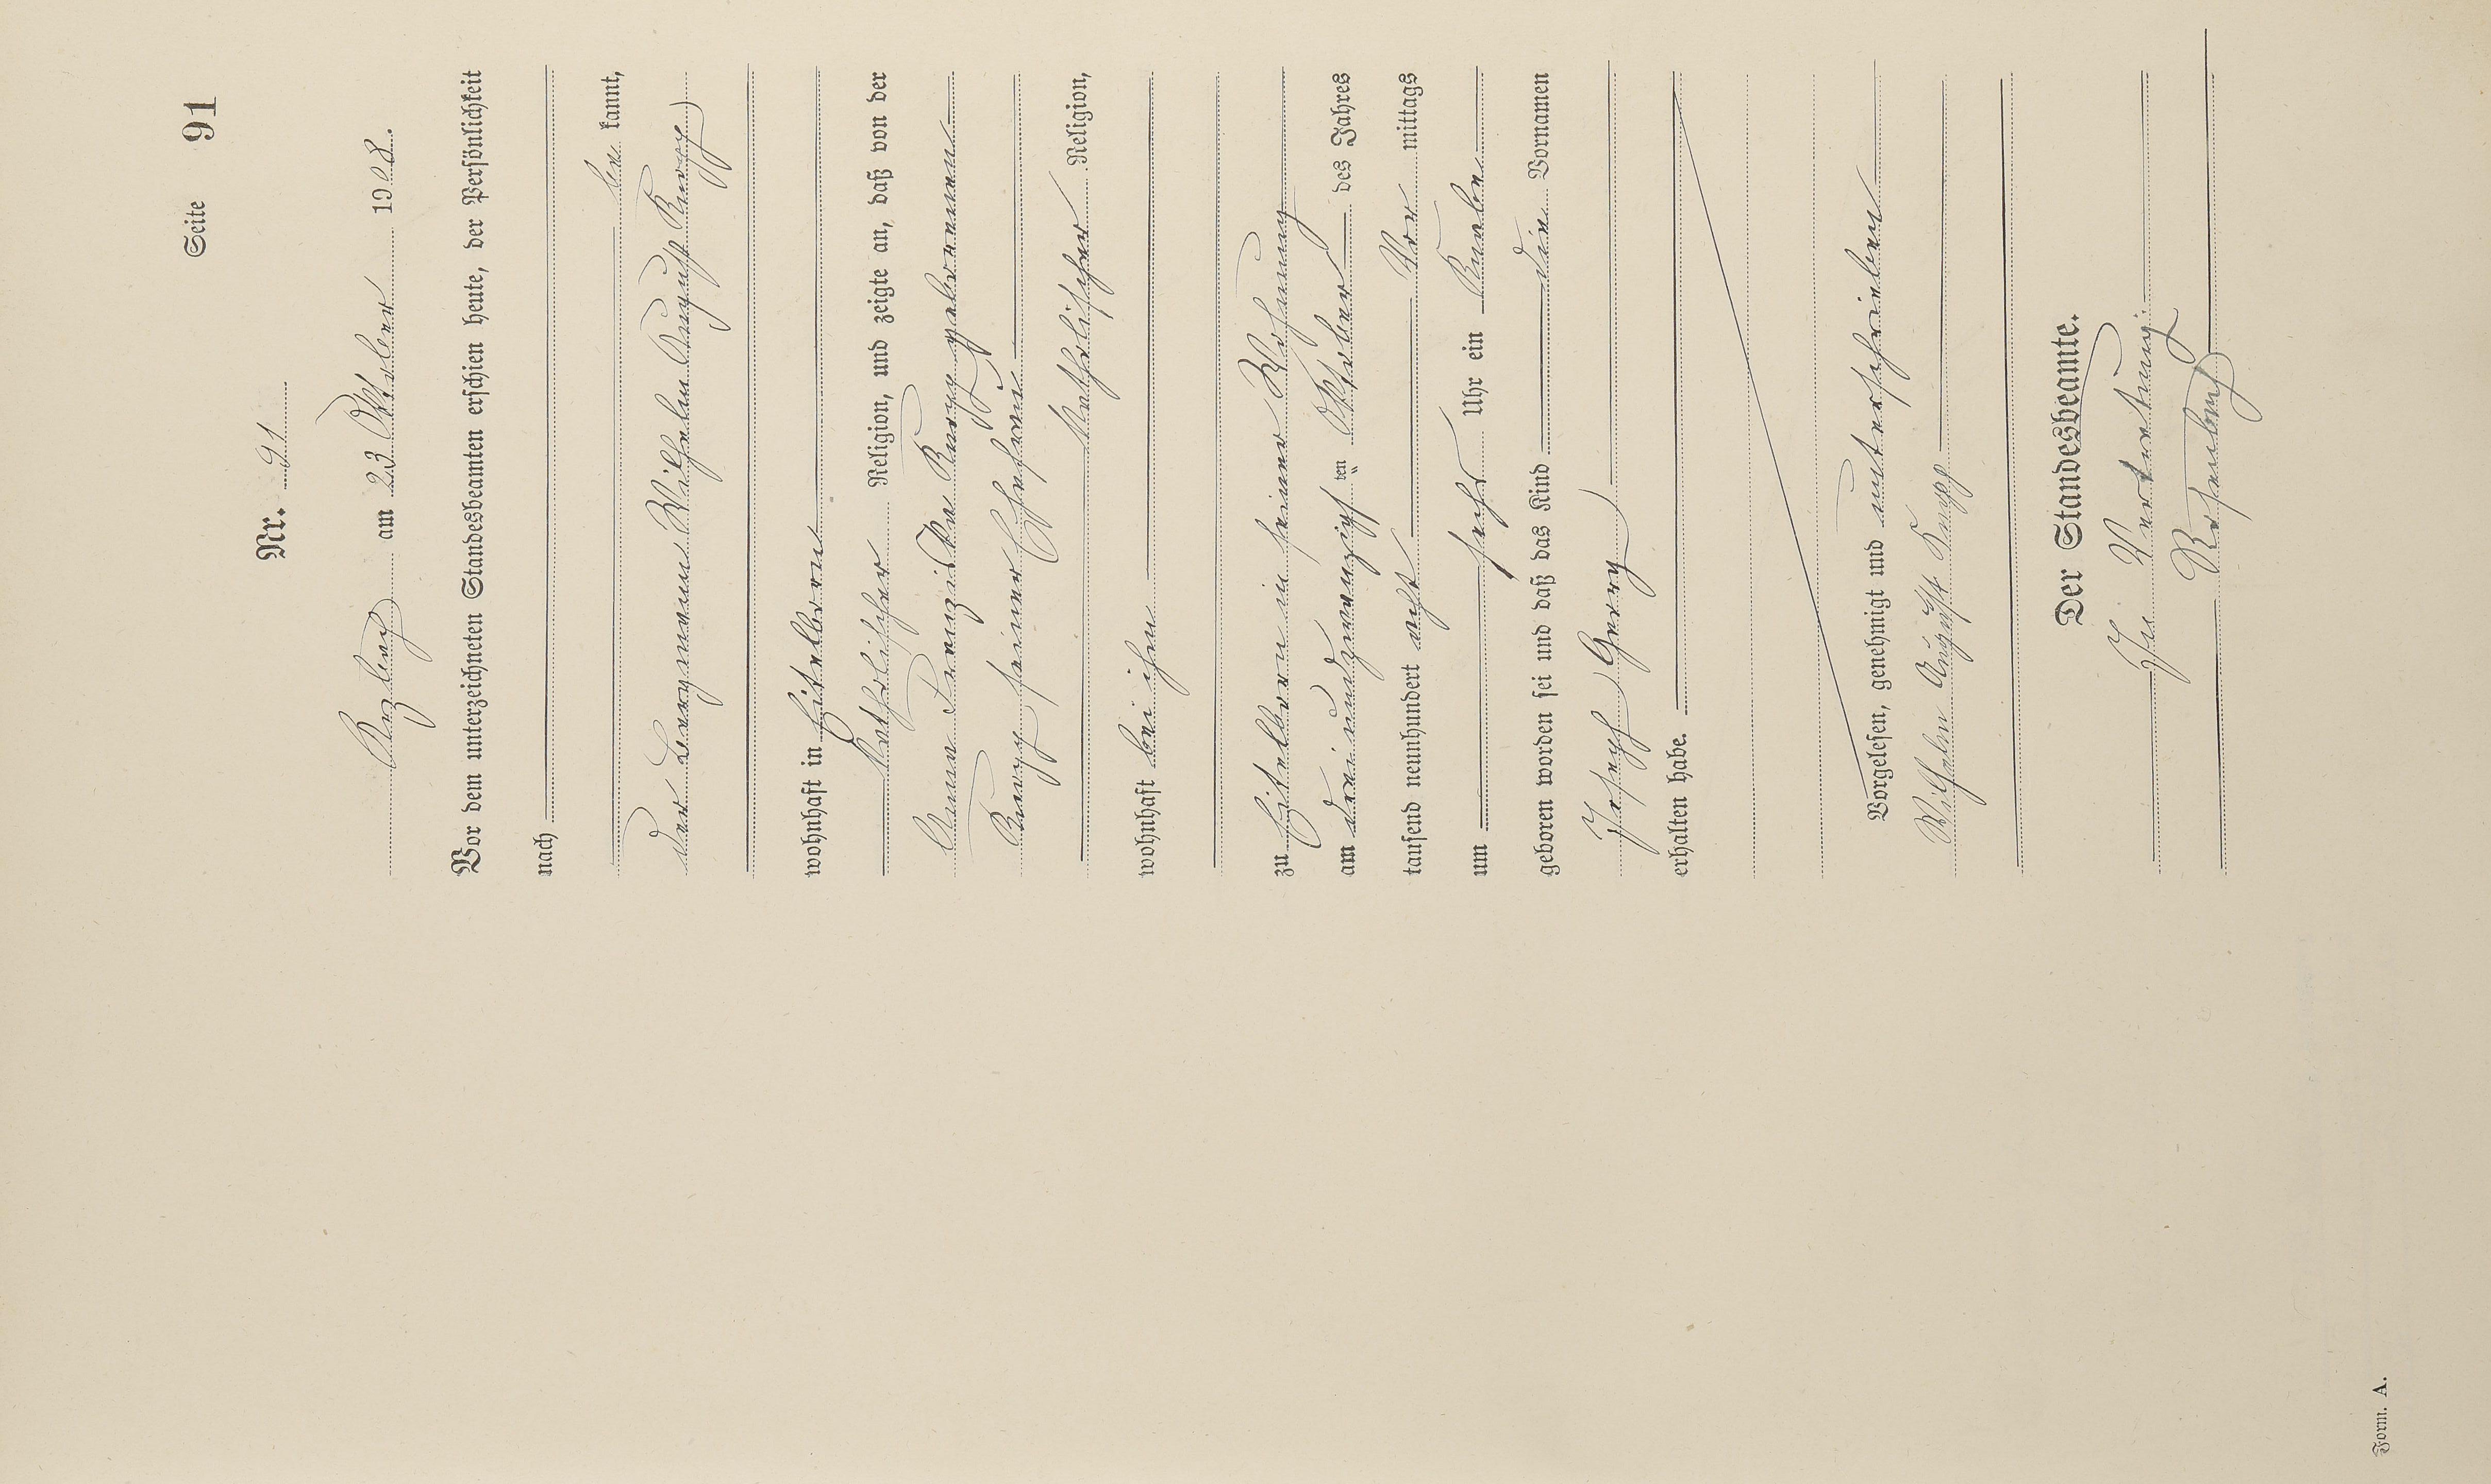 Seite 91
Nr. 91
Kuzbach am 23 Oktober 1908.
Vor dem unterzeichneten Standesbeamten erschien heute, der Persönlichkeit
nach
be kannt,
der Bergmann Wilhelm August Knopp
wohnhaft in Eitelborn
katholischer Religion, und zeigte an, daß von der
Anna Franziska Knopp geborenen
Knopp seiner Ehefrau
katholischer Religion,
wohnhaft bei ihm
zu Eitelborn in seiner Wohnung
am dreiundzwanzigsten Oktober des Jahres
tausend neunhundert acht Vor mittags
um sechs Uhr ein Knabe
geboren worden sei und daß das Kind die Vornamen
Joseph Georg
erhalten habe.
Vorgelesen, genehmigt und unterschrieben
Wilhelm August Knopp
Der Standesbeamte.
In Vertretung:
Form. A.